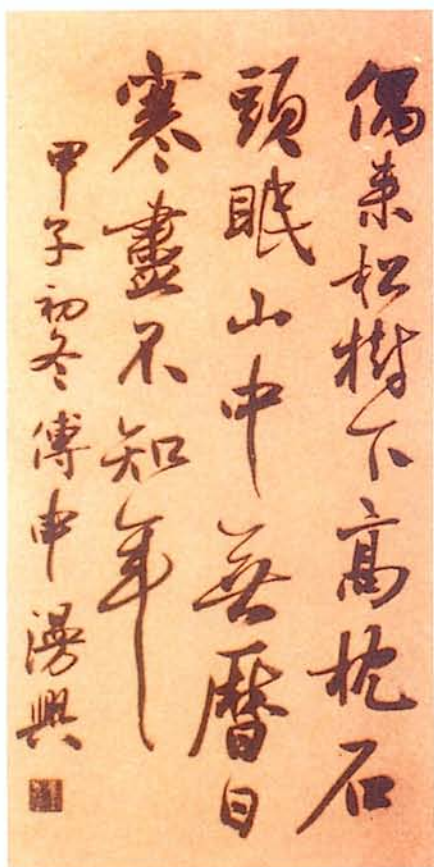 偶来松樹下高枕石
頭眠山中無曆日
寒盡不知年
甲子初冬傅申漫興